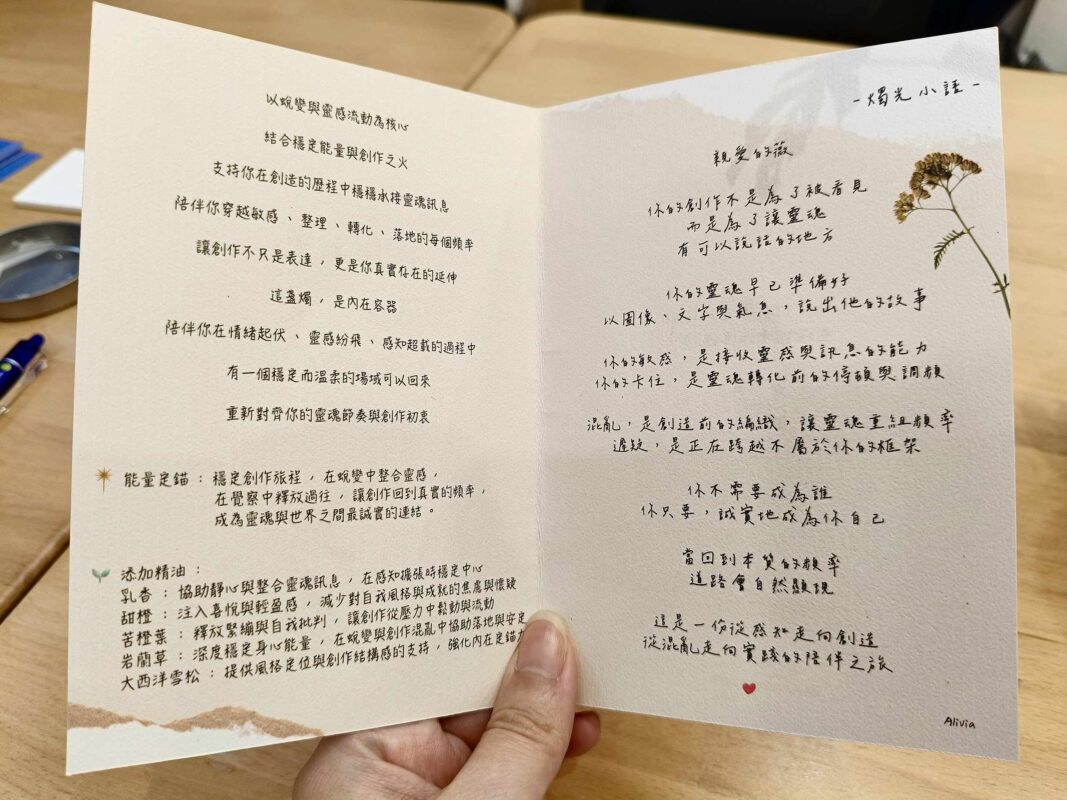 以蛻變與靈感流動為核心
結合穩定能量與創作之火
支持你在創造的歷程中穩穩承接靈魂訊息
陪伴你穿越敏感、整理、轉化、落地的每個頻率
讓創作不只是表達，更是你真實存在的延伸
這盞燭，是內在容器
陪伴你在情緒起伏、靈感紛飛、感知超載的過程中
有一個穩定而溫柔的場域可以回來
重新對齊你的靈魂節奏與創作初衷
能量定錨：穩定創作旅程，在蛻變中整合靈感，
在覺察中釋放過往，讓創作回到真實的頻率，
成為靈魂與世界之間最誠實的連結。
添加精油：
乳香：協助靜心與整合靈魂訊息，在感知擴張時穩定中心
甜橙：注入喜悅與輕盈感，減少對自我風格與成就的焦慮與懷疑
苦橙葉：釋放緊繃與自我批判，讓創作從壓力中鬆動與流動
岩蘭草：深度穩定身心能量，在蛻變與創作混亂中協助落地與安定
大西洋雪松：提供風格定位與創作結構感的支持，強化內在定錨力
-燭光小語-
親愛的薇
你的創作不是為了被看見
而是為了讓靈魂
有可以說話的地方
你的靈魂早已準備好
以圖像、文字與氣息，說出他的故事
你的敏感，是接收靈感與訊息的能力
你的卡住，是靈魂轉化前的停頓與調頻
混亂，是創造前的編織，讓靈魂重組頻率
遲疑，是正在跨越不屬於你的框架
你不需要成為誰
你只要，誠實地成為你自己
當回到本質的頻率
道路會自然顯現
這是一份從感知走向創造
從混亂走向實踐的陪伴之旅
Alivia